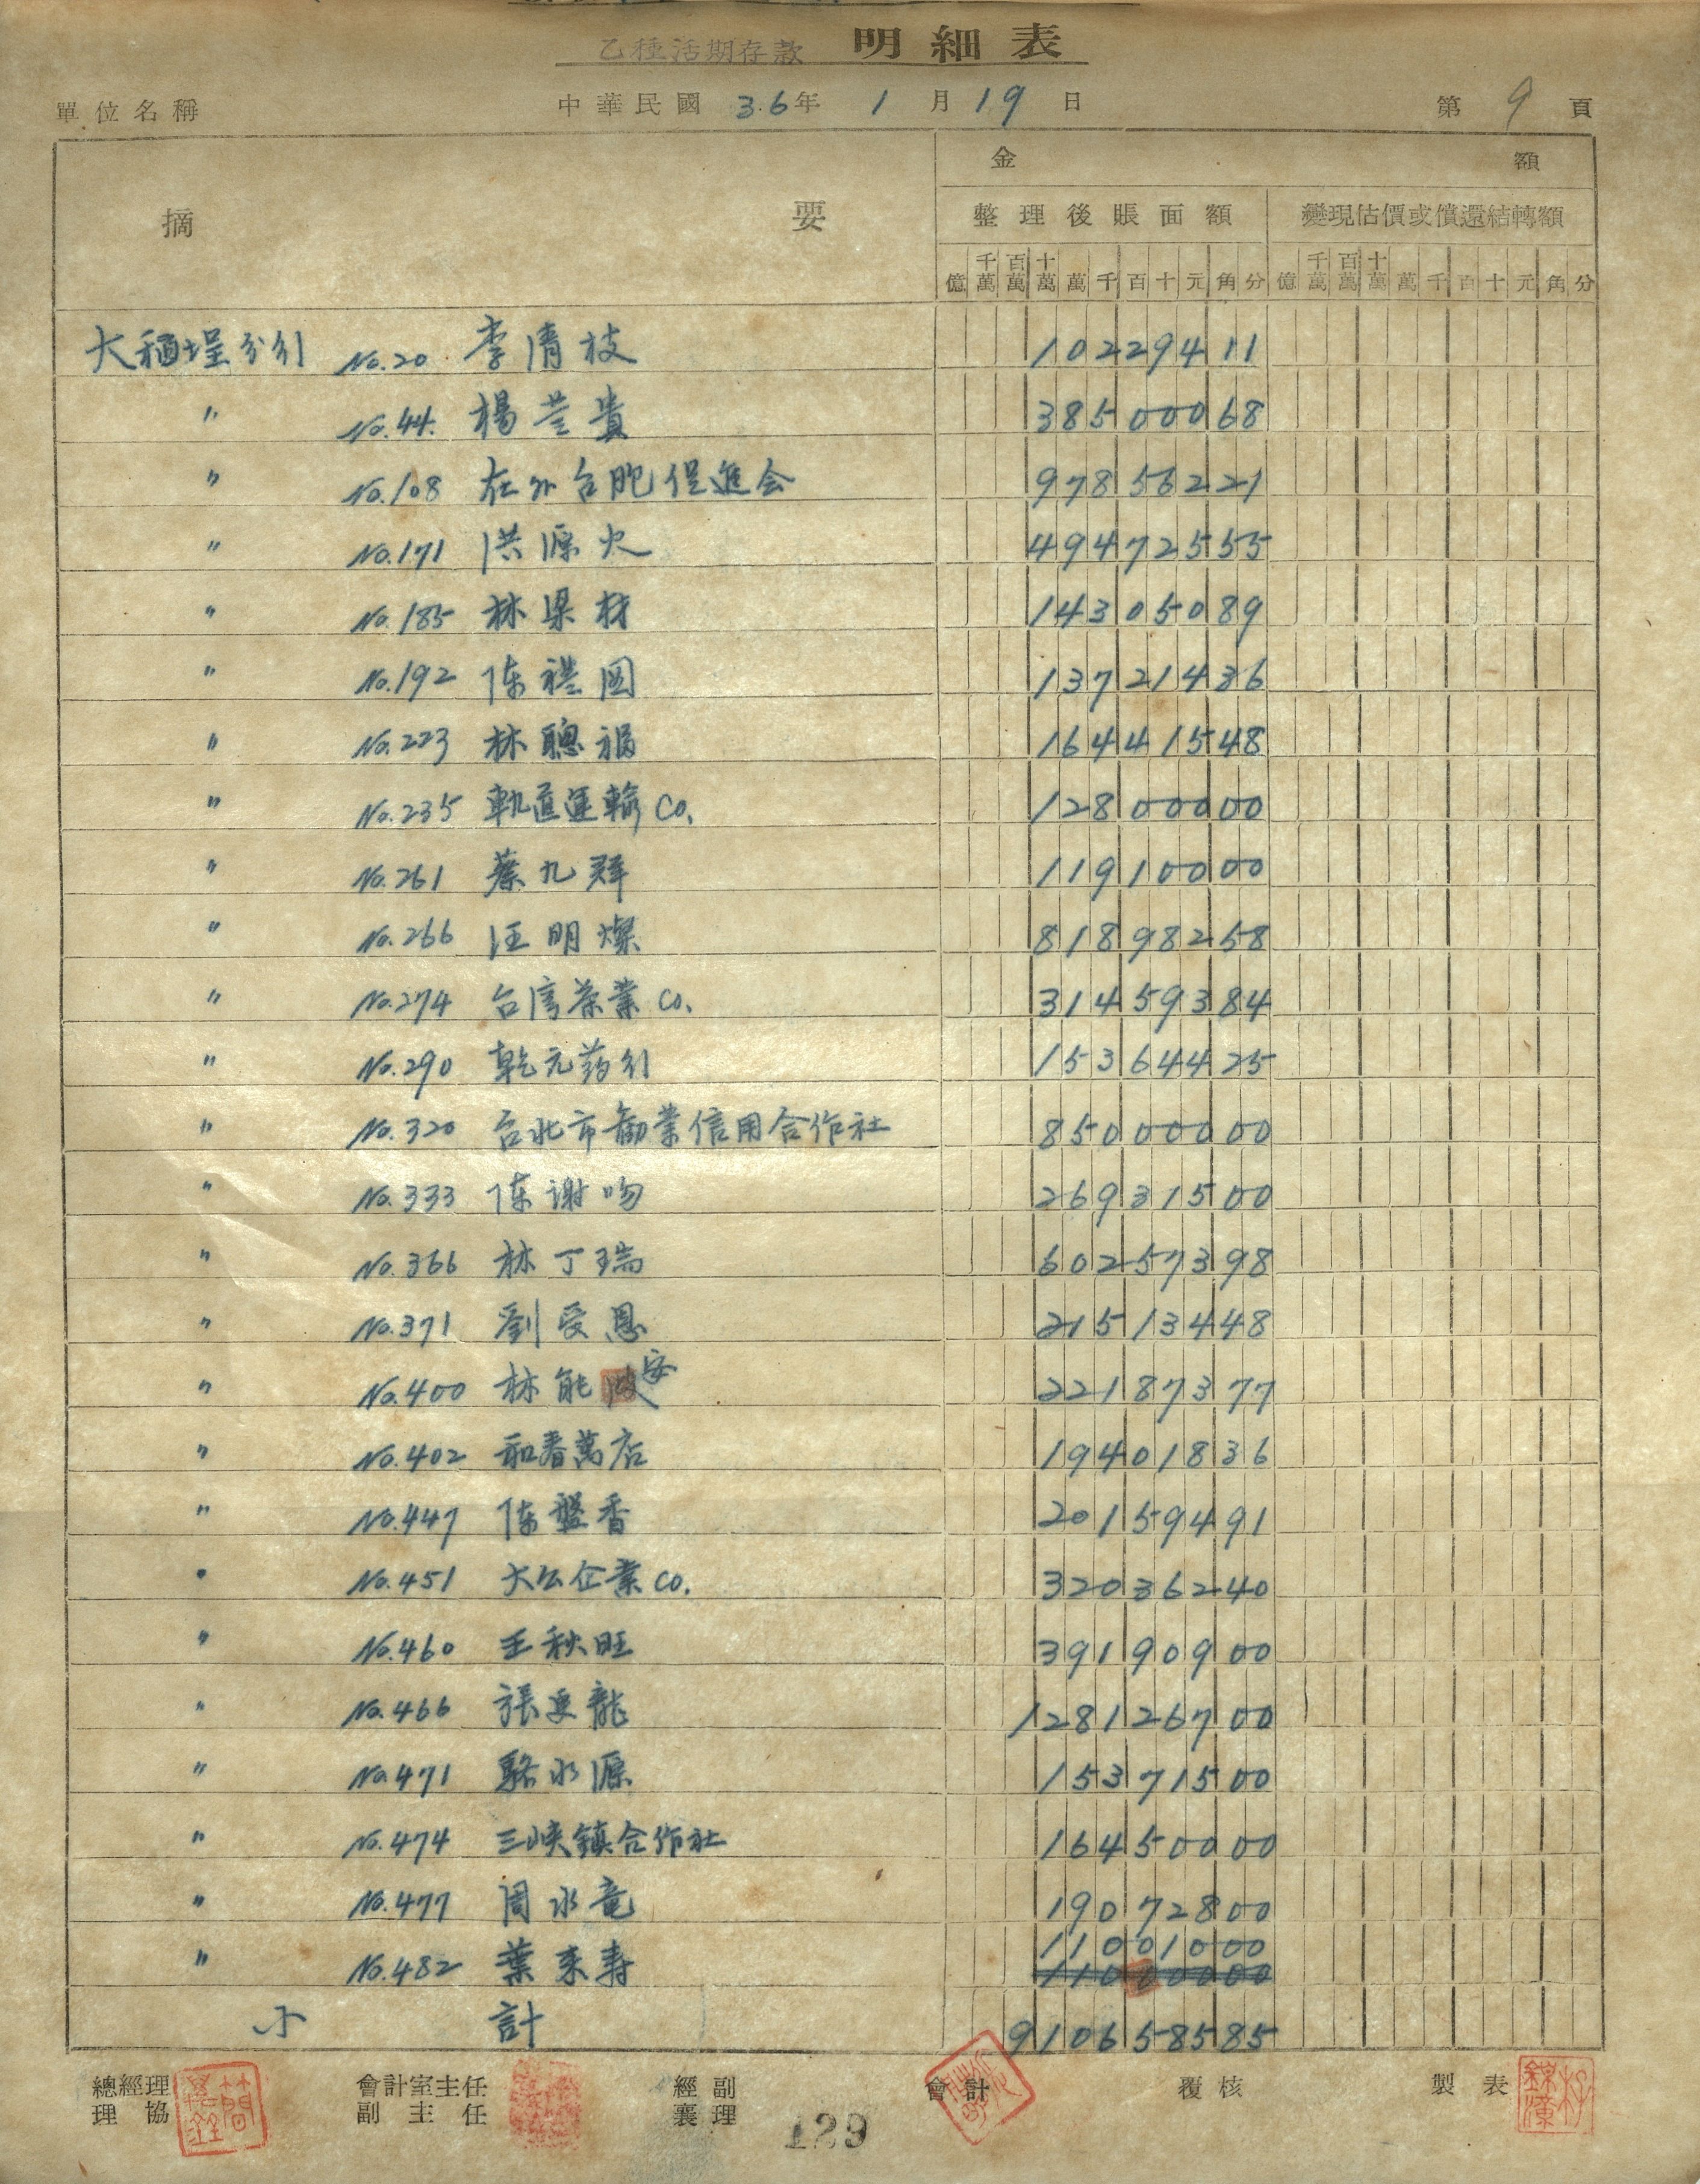 乙種活期存款 明細表
單位名稱 中華民國 36年 1月19日 第9頁
摘要 金額
整理後賬面額 變現估價或償還結轉額
億 千萬 百萬 十萬 萬 千 百 十 元 角 分 億 千萬 百萬 十萬 萬 千 百 十 元 角 分
大稻埕分行 No.20 李清枝 10229411
〃 No.44. 楊蘭貴 38500068
〃 No.108 在外台胞促進会 97856221
〃 No.171 洪源火 49472555
〃 No.185 林渠材 14305089
〃 No.192 陈禮固 13721436
〃 No.223 林聰福 16441548
〃 No.235 軌道運輸Co. 12800000
〃 No.261 蔡九羣 11910000
〃 No.266 汪明燦 81898258
〃 No.274 台湾茶業Co. 31459384
〃 No.290 乾元药行 15364425
〃 No.320 台北市勧業信用合作社 85000000
〃 No.333 陈謝吻 26931500
〃 No.366 林丁瑞 60257398
〃 No.371 劉受恩 21513448
〃 No.400 林能安 22187377
〃 No.402 和春萬店 19401836
〃 No.447 陈盤香 20159491
〃 No.451 大公企業Co. 32036240
〃 No.460 王秋旺 39190900
〃 No.466 張更龍 128126700
〃 No.471 駱水源 15371500
〃 No.474 三峽鎮合作社 16450000
〃 No.477 周水竜 19072800
〃 No.482 葉来寿 11001000
11000000
小計 910658585
總經理 會計室主任 經副 會計 覆核 製表
協理 副主任 襄理
129